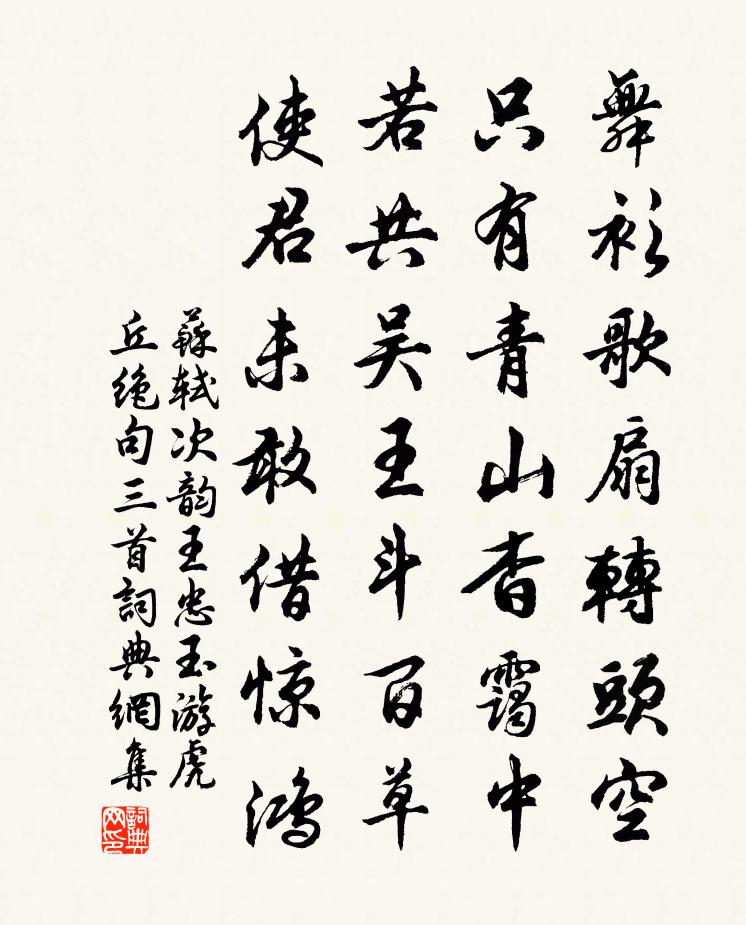 舞衫歌扇轉頭空
只有青山杳靄中
若共吴王斗百草
使君未敢借惊鸿
蘇軾次韵王忠玉游虎
丘絶句三首詞典網集
詞典
网印